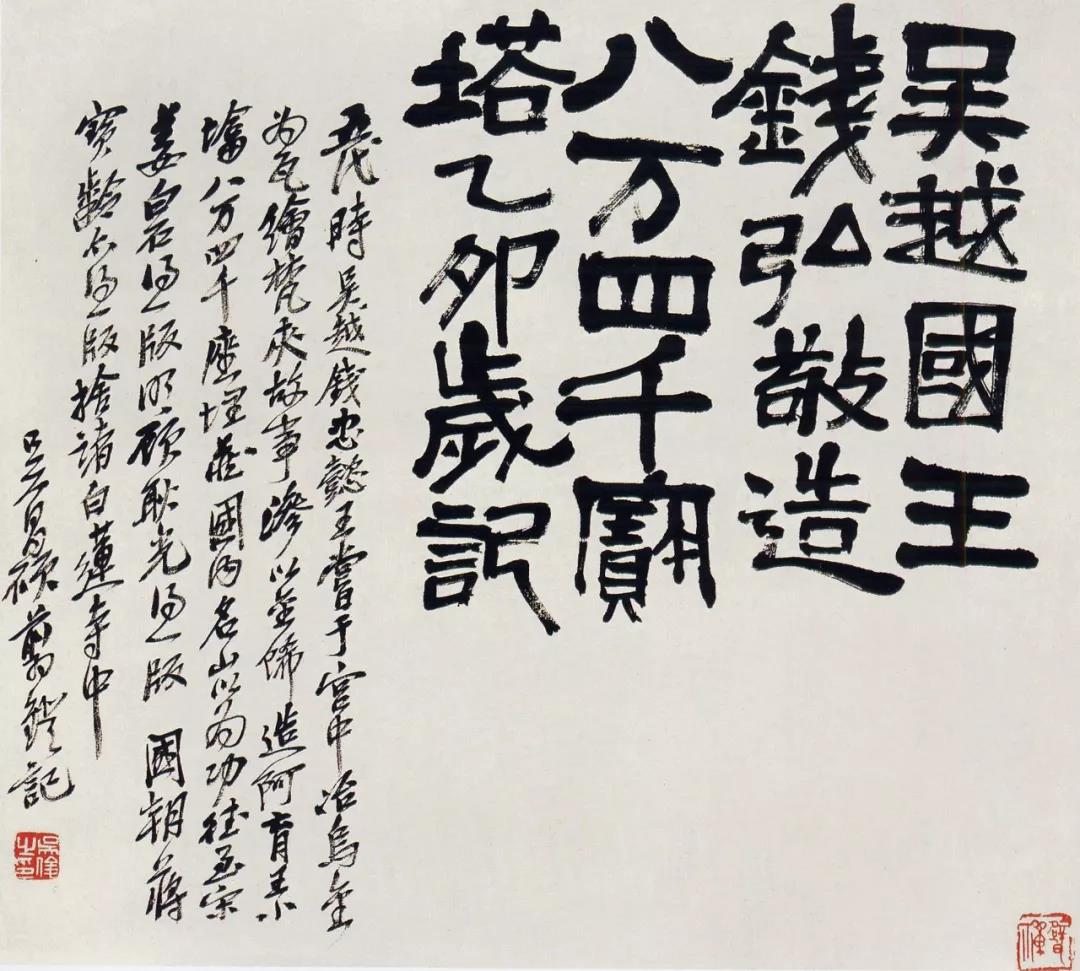 吳越國王
錢弘敬造
八万四千寶
塔乙卯歲記
五代時吳越錢忠懿王嘗于宮中冶烏金
為瓦繪梵夾故事滲以金飾造阿育王小
墖八万四千座埋藏國內名山以為功德至宋
姜白石得一版明顧耿光得一版 國朝蔣
寶齡亦得一版捨諸白蓮寺中
吳昌碩翦鐙記
吳俊之印